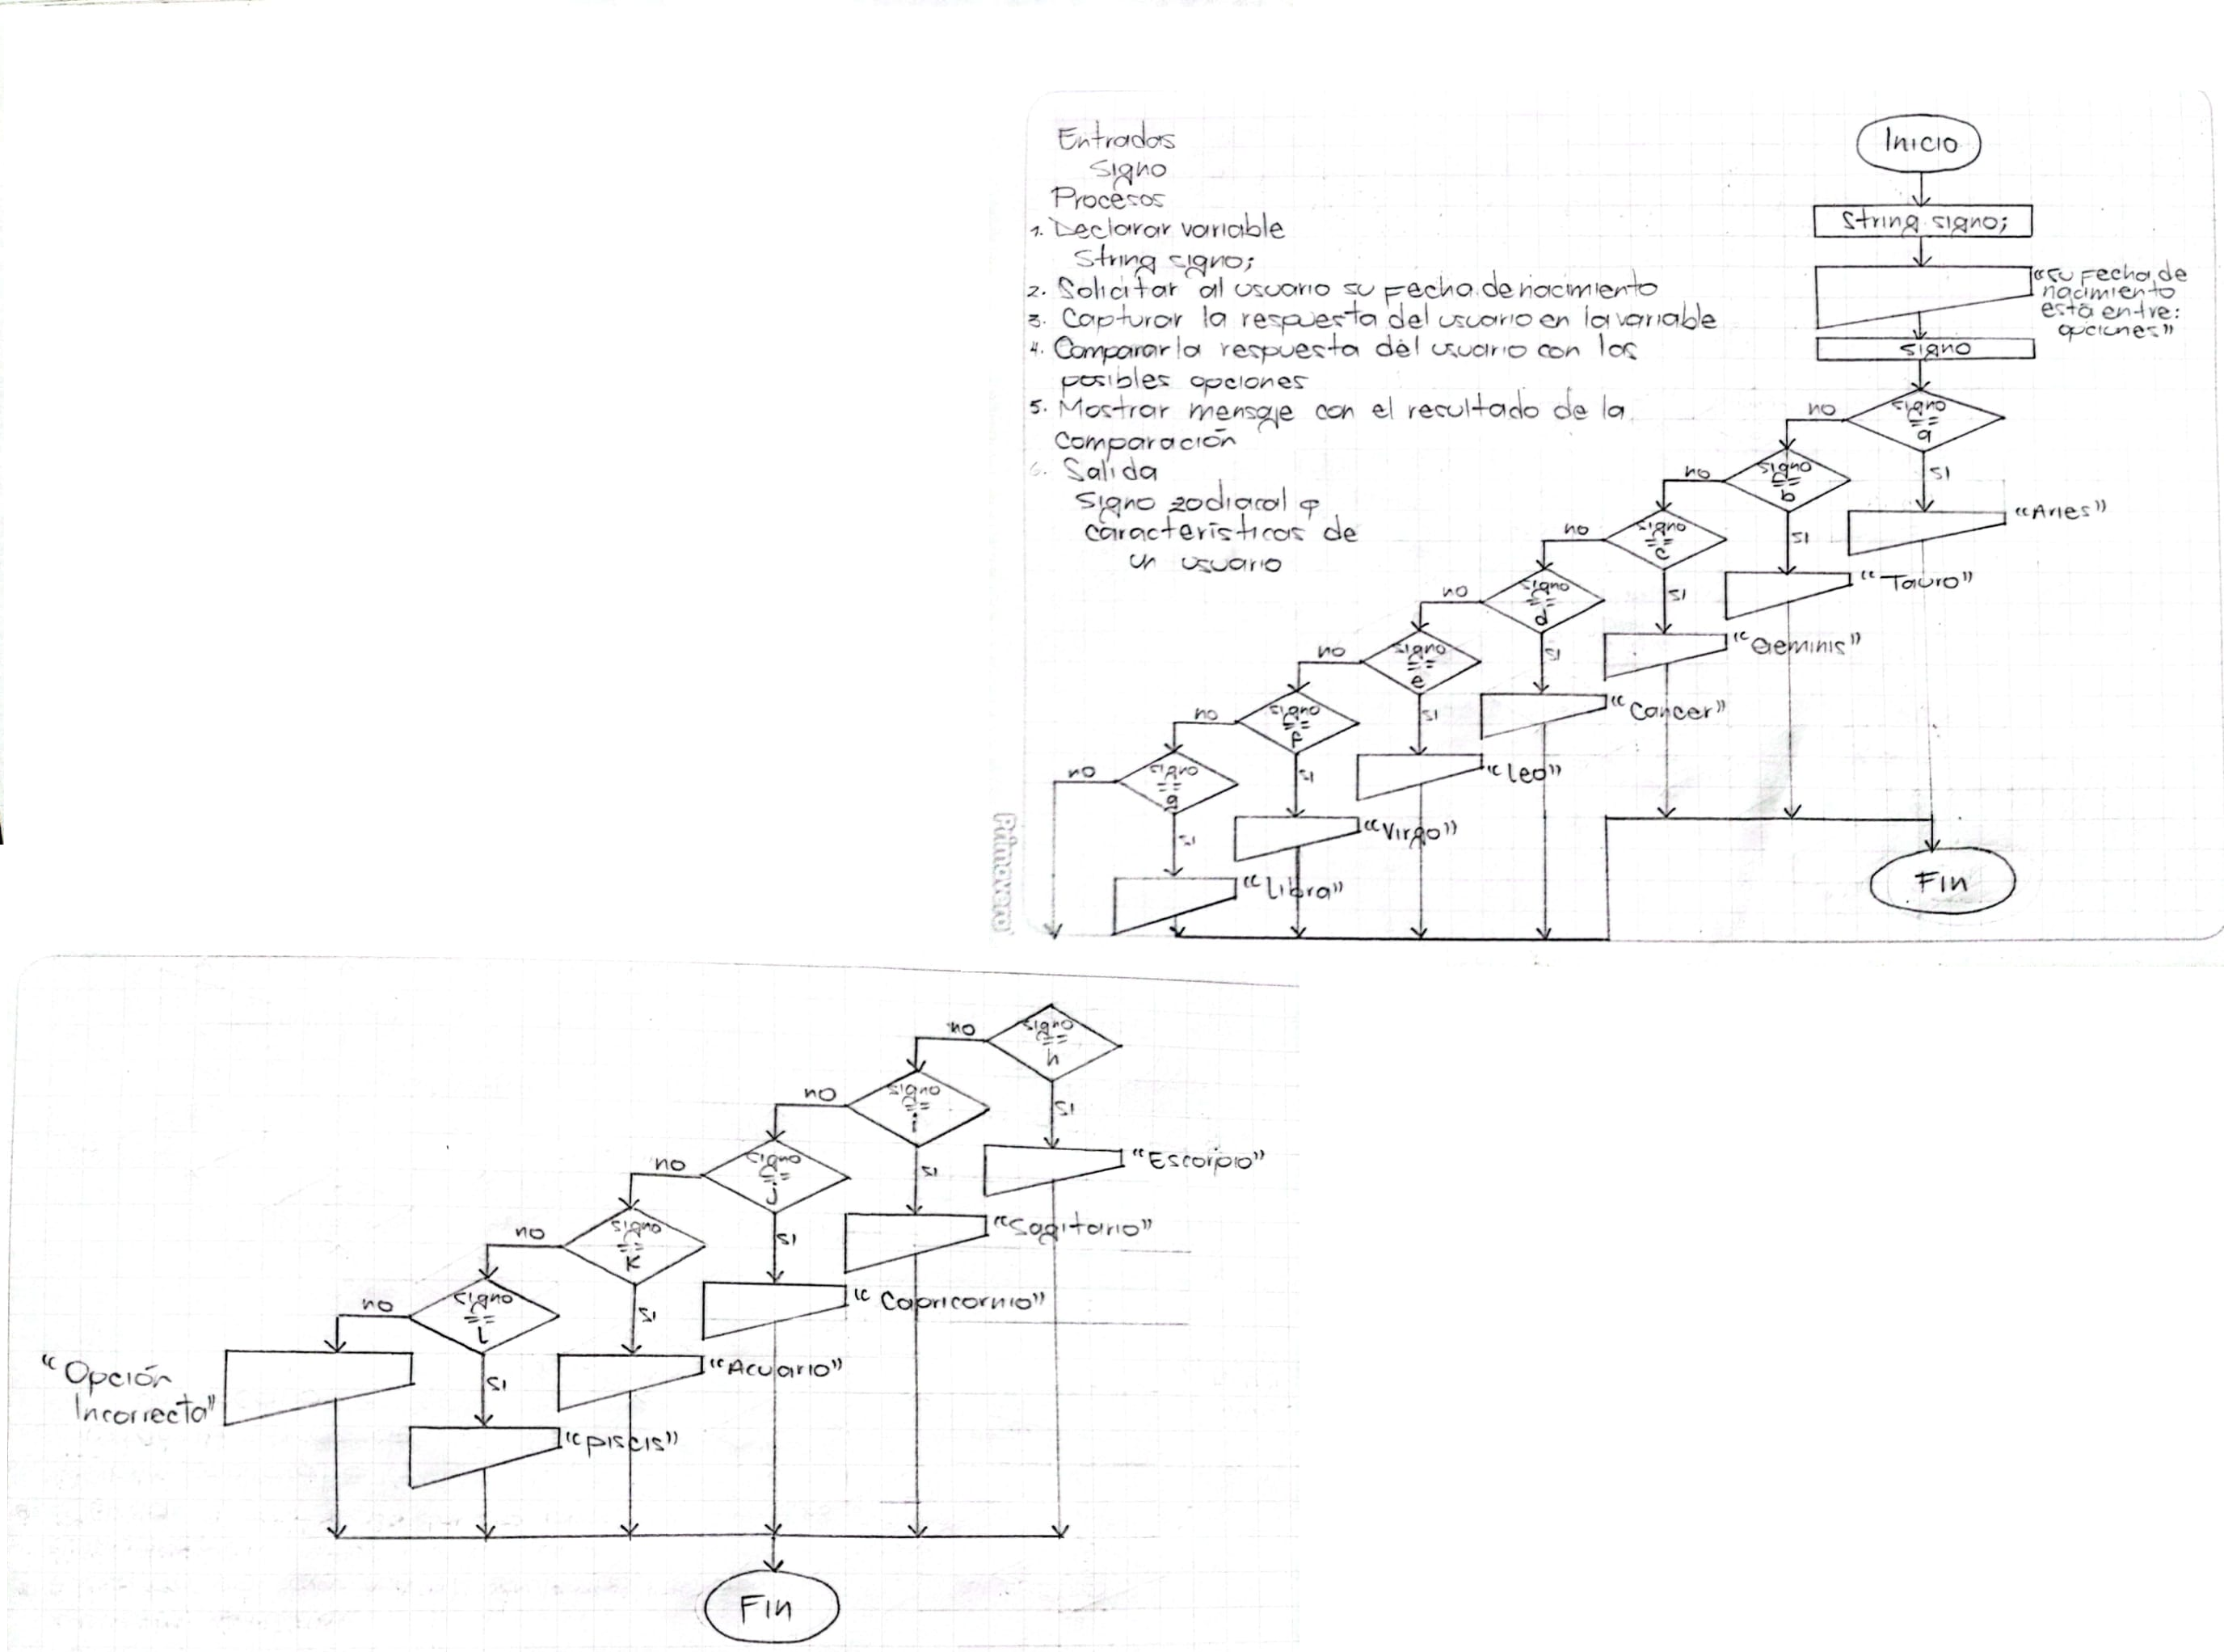 Entradas
signo
Procesos
1. Declarar variable
String signo;
2. Solicitar al usuario su Fecha de nacimiento
3. Capturar la respuesta del usuario en la variable
4. Comparar la respuesta del usuario con las
posibles opciones
5. Mostrar mensaje con el resultado de la
comparación
6. Salida
signo zodiacal
características de
un usuario
Inicio
String signo;
"su Fecha de
nacimiento
está entre:
opciones"
signo
signo
==
a
no
si
"Aries"
signo
==
b
no
si
"Tauro"
signo
==
c
no
si
"Geminis"
signo
==
d
no
si
"Cancer"
signo
==
e
no
si
"Leo"
signo
==
f
no
si
"Virgo"
signo
==
g
no
si
"Libra"
Fin
Primavera
signo
==
h
no
si
"Escorpio"
signo
==
i
no
si
"Sagitario"
signo
==
j
no
si
"Capricornio"
signo
==
k
no
si
"Acuario"
signo
==
l
no
si
"piscis"
"Opción
Incorrecta"
Fin